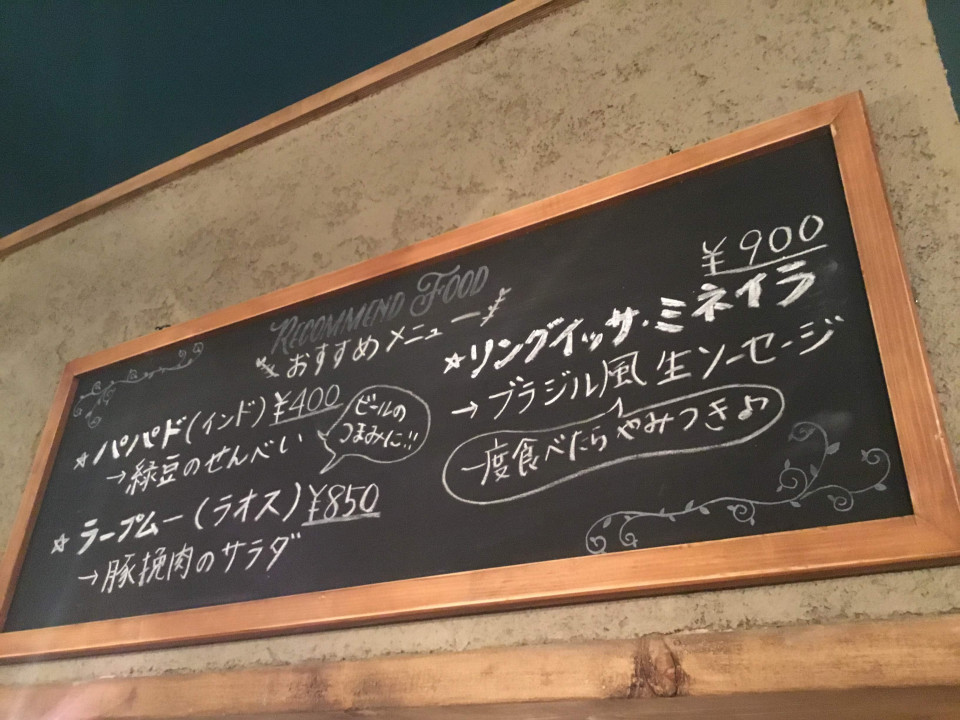 RECOMMEND FOOD
おすすめメニュー
☆パパド(インド)¥400
→緑豆のせんべい
ビールの
つまみに!!
☆ラープムー(ラオス)¥850
→豚挽肉のサラダ
¥900
☆リングイッサ・ミネイラ
→ブラジル風生ソーセージ
一度食べたらやみつき♪